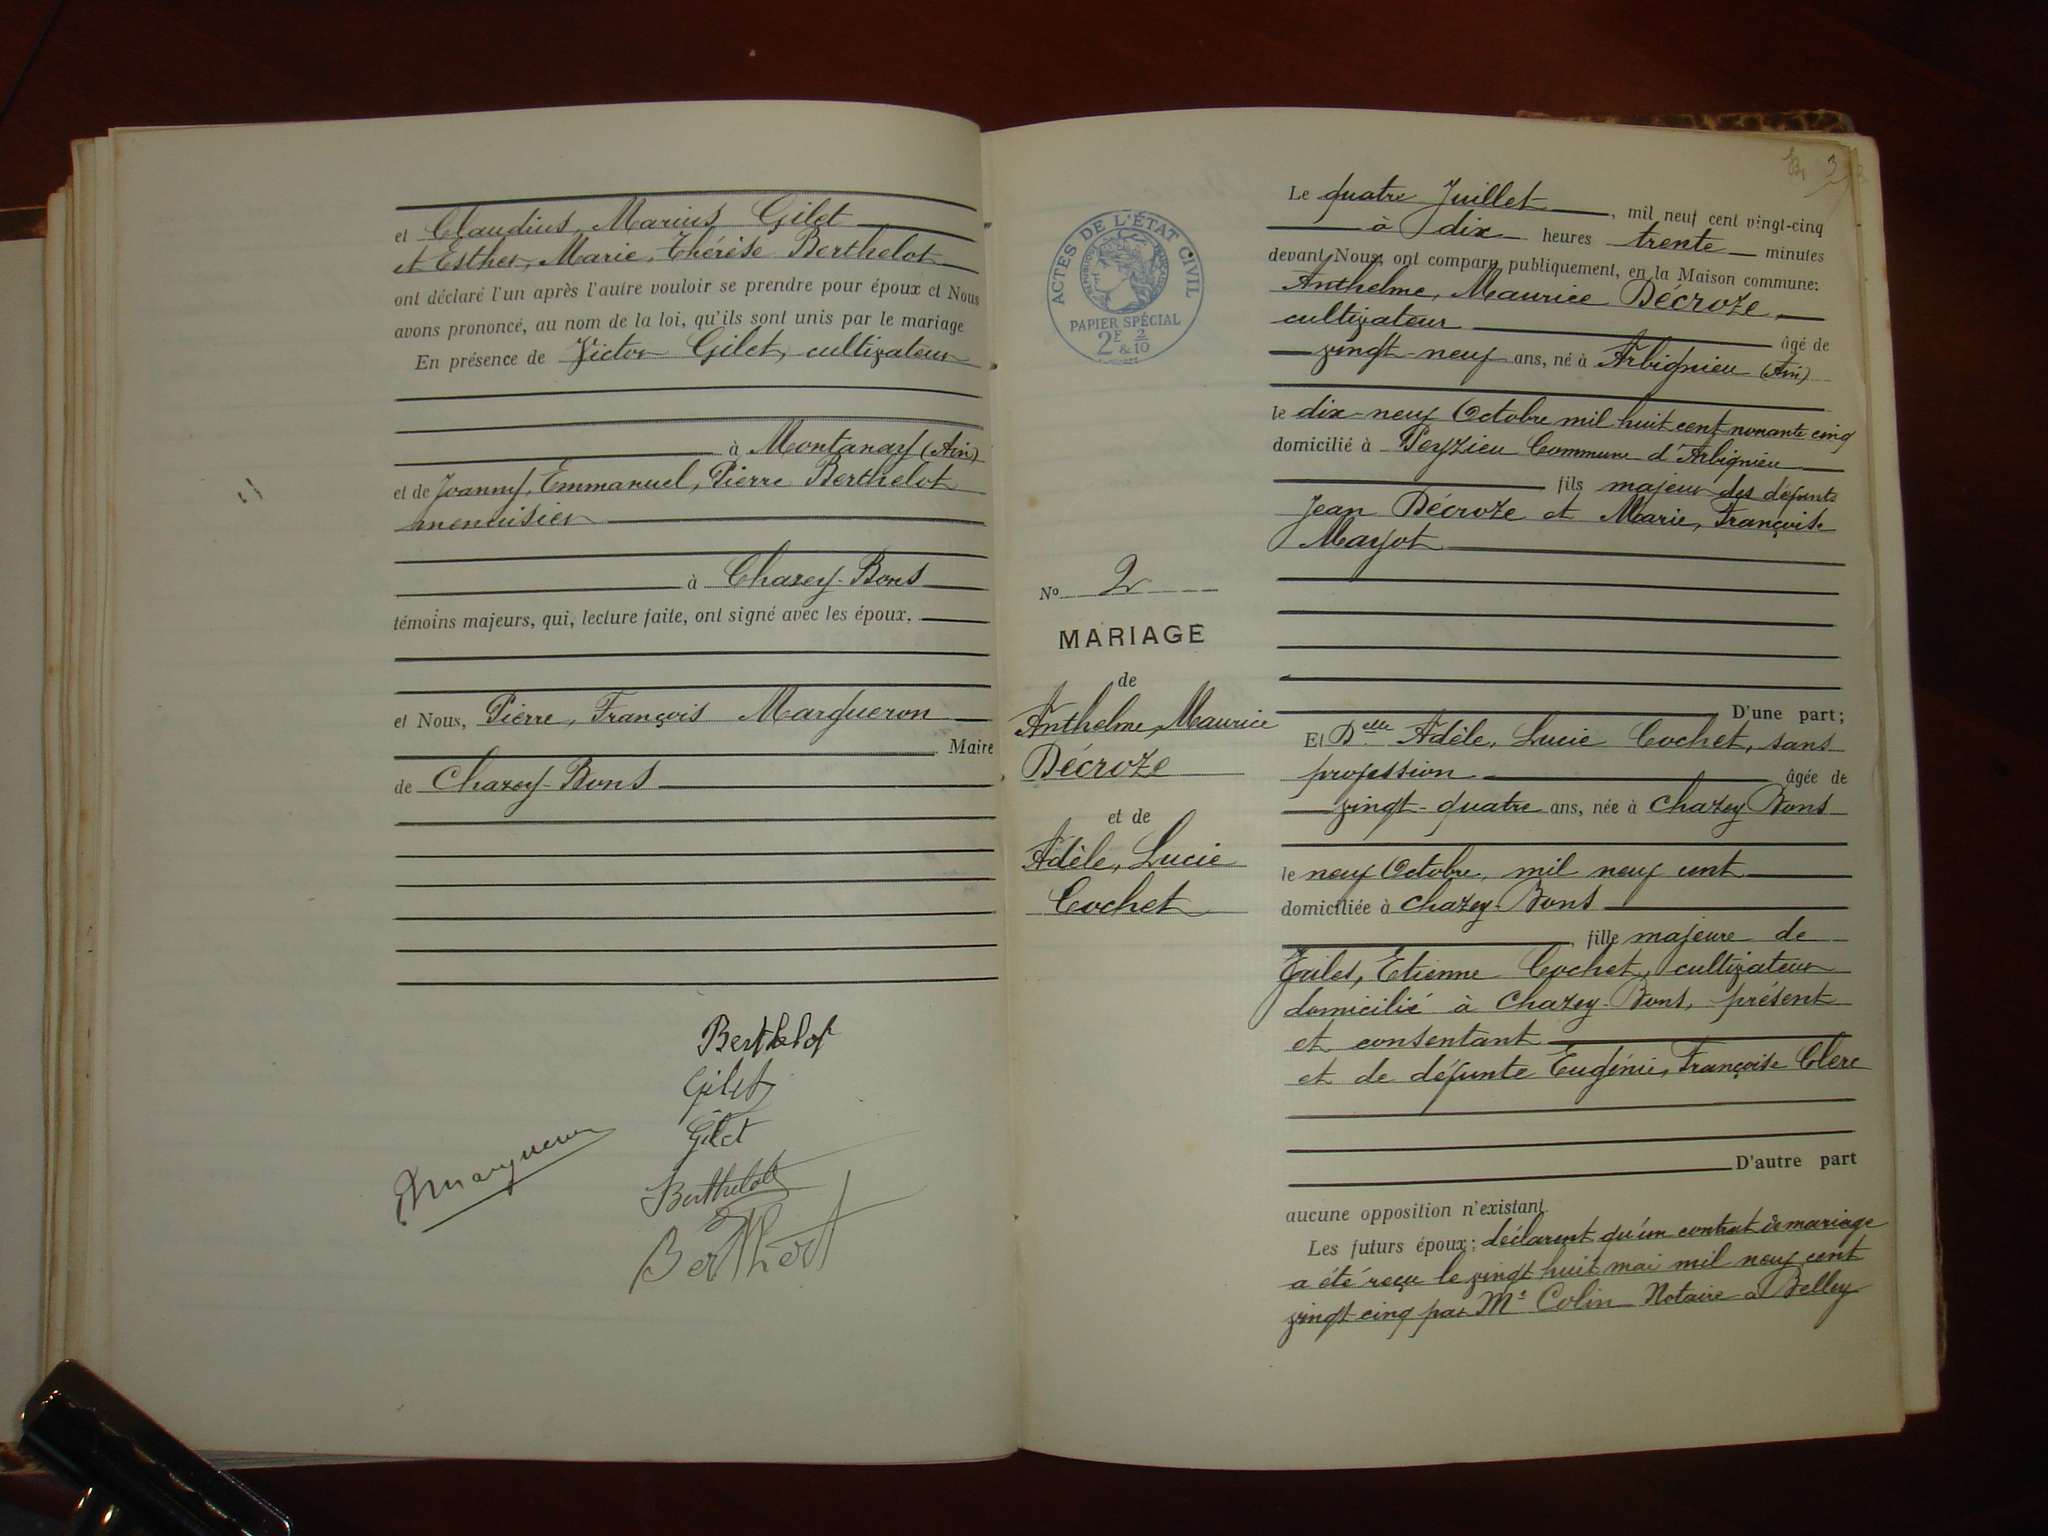 et Claudius, Marius Gilet
et Esther, Marie, Thérèse Berthelot
ont déclaré l'un après l'autre vouloir se prendre pour époux et Nous
avons prononcé, au nom de la loi, qu'ils sont unis par le mariage
En présence de Victor Gilet, cultivateur
à Montanay (Ain)
et de Joanny, Emmanuel, Pierre Berthelot
menuisier
à Chazey-Bons
témoins majeurs, qui, lecture faite, ont signé avec les époux.
et Nous, Pierre, François Margueron
Maire
de Chazey-Bons
Berthelot
Gilet
Gilet
Margueron
Berthelot
Berthet
ACTES DE L'ÉTAT CIVIL
PAPIER SPÉCIAL
2F & 2/10
No 2
MARIAGE
de
Anthelme, Maurice
Décroze
et de
Adèle, Lucie
Cochet
3
Le quatre Juillet, mil neuf cent vingt-cinq
à dix heures trente minutes
devant Nous, ont comparu publiquement, en la Maison commune:
Anthelme, Maurice Décroze,
cultivateur
âgé de
vingt-neuf ans, né à Arbignieu (Ain)
le dix-neuf Octobre mil huit cent nonante cinq
domicilié à Peyzieu Commune d'Arbignieu
fils majeur des défunts
Jean Décroze et Marie, Françoise
Mayot
D'une part;
Et Delle Adèle, Lucie Cochet, sans
profession âgée de
vingt-quatre ans, née à Chazey-Bons
le neuf Octobre, mil neuf cent
domiciliée à Chazey-Bons
fille majeure de
Jules, Etienne Cochet, cultivateur
domicilié à Chazey-Bons, présent
et consentant
et de défunte Eugénie, Françoise Clerc
D'autre part
aucune opposition n'existant.
Les futurs époux; déclarent qu'un contrat de mariage
a été reçu le vingt huit mai mil neuf cent
vingt cinq par Me Colin Notaire à Belley